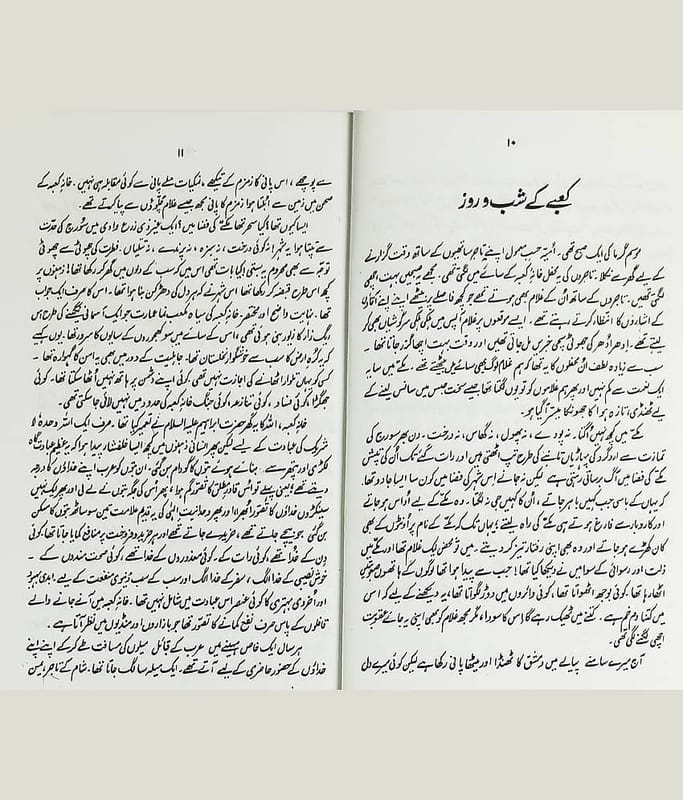 ۱۰
کعبے کے شب و روز
موسم گرما کی ایک صبح تھی۔ اُمیّہ حسب معمول اپنے تاجر ساتھیوں کے ساتھ وقت گزارنے
کے لیے گھر سے نکلا۔ تاجروں کی یہ محفل خانۂ کعبہ کے سائے میں لگتی تھی۔ مجھے یہ صبحیں بہت اچھی
لگتی تھیں۔ تاجروں کے ساتھ اُن کے غلام بھی ہوتے تھے جو کچھ فاصلے پر بیٹھے اپنے اپنے آقا کی
کے اشاروں کا انتظار کرتے رہتے تھے۔ ایسے موقعوں پر غلام آپس میں ہلکی ہلکی سرگوشیاں بھی کر
لیتے تھے۔ اِدھر اُدھر کی چھوٹی بڑی خبریں مل جاتی تھیں اور وقت بہت اچھا گزر جاتا تھا۔
سب سے زیادہ لطف اُن محفلوں کا یہ تھا کہ ہم غلام لوگ بھی سائے میں بیٹھتے تھے۔ مکّے میں سایہ
ایک نعمت سے کم نہیں اور پھر ہم غلاموں کو تو یوں لگتا تھا جیسے سخت حبس میں سانس لینے کے
لیے ٹھنڈی، تازہ ہوا کا جھونکا میسّر آ گیا ہو۔
مکّے میں کچھ نہیں اُگتا۔ نہ پودے، نہ پھول، نہ گھاس، نہ درخت۔ دن بھر سورج کی
تمازت سے اردگرد کی پہاڑیاں تانبے کی طرح تپ اٹھتی ہیں اور رات گئے تک اُن کی تپش
مکّے کی فضا میں آگ برساتی رہتی ہے۔ لیکن نہ جانے اِس شہر کی فضا میں کون سا ایسا جادو تھا۔
کہ یہاں کے باسی جب کہیں باہر جاتے، اُن کا کہیں جی نہ لگتا۔ وہ مکّے کے لیے اُداس ہو جاتے
اور کاروبار سے فارغ ہوتے ہی مکّے کی راہ لیتے، یہاں تک کہ مکّے کے نام پر اُونٹوں کے بھی
کان کھڑے ہو جاتے اور وہ بھی اپنی رفتار تیز کر دیتے۔ میں تو محض ایک غلام تھا اور مکّے میں
ذلت اور رسوائی کے سوا میں نے دیکھا کیا تھا! جب سے پیدا ہوا تھا لوگوں کے ہاتھوں
اٹھا رہا تھا۔ کوئی بوجھ اٹھواتا تھا، کوئی دائروں میں دوڑ لگواتا تھا، یہ دیکھنے کے لیے کہ اس
میں کتنا دم خم ہے۔ کتنے میں ٹھیک رہے گا اِس کا سودا، مگر مجھ غلام کو بھی اپنی یہ جائے عقوبت
اچھی لگنے لگی تھی۔
آج میرے سامنے پیالے میں دمشق کا ٹھنڈا اور میٹھا پانی رکھا ہے لیکن کوئی میرے دل
۱۱
سے پوچھے، اس پانی کا زمزم کے تیکھے، نمکیات ملے پانی سے کوئی مقابلہ ہی نہیں۔ خانۂ کعبہ کے
صحن میں زمین سے ابلتا ہوا زمزم کا پانی مجھ جیسے غلام چلّوؤں سے پیا کرتے تھے۔
ایسا کیوں تھا! کیا سحر تھا مکّے کی فضا میں؟ ایک غیر ذی زرع وادی میں سُورج کی حدّت
سے تپتا ہوا یہ شہر! نہ کوئی درخت، نہ سبزہ، نہ پرندے، نہ تتلیاں۔ فطرت کی چھوٹی سے چھوٹی
توجّہ سے بھی محروم یہ بستی! کیا بات تھی اس میں کہ سب کے دلوں میں گھر کر رکھا تھا! ذہنوں پر
کچھ اس طرح قبضہ کر رکھا تھا! اس شہر نے کہ ہر دل کی دھڑکن بنا ہوا تھا۔ اس کا صرف ایک جواب
تھا۔ نہایت واضح اور مختصر۔ خانۂ کعبہ کی سیاہ مکعب نما عمارت جو ایک آسمانی نگینے کی طرح اس
ریگ زار کا زیور بنی ہوئی تھی، اس کے سائے میں سو کھجوروں کے سایوں کا سرور تھا۔ یوں کہیے
کہ یہ کرّۂ ارض کا سب سے خوشگوار نخلستان تھا۔ جاہلیت کے دور میں بھی یہ امن کا گہوارہ تھا۔
کسی کو یہاں تلوار اٹھانے کی اجازت نہیں تھی، کوئی اپنے دشمن پر ہاتھ نہیں اُٹھا سکتا تھا۔ کوئی
جھگڑا، کوئی فساد، کوئی تنازعہ، کوئی جنگ خانۂ کعبہ کی حدود میں نہیں لائی جا سکتی تھی۔
خانۂ کعبہ، اللہ کا یہ گھر حضرت ابراہیم علیہ السلام نے تعمیر کیا تھا۔ صرف ایک اللہ وحدہٗ لا
شریک کی عبادت کے لیے لیکن پھر انسانی ذہنوں میں کچھ ایسا خلفشار پیدا ہوا کہ یہ عظیم عبادت گاہ
لکڑی اور پتھر سے بنائے ہوئے بتوں کا گودام بن گئی۔ ان بتوں کو عرب اپنے خداؤں کا درجہ
دیتے تھے، یعنی پہلے تو اُس قادرِ مطلق کا تصوّر گم ہوا، پھر اُس کی جگہ بتوں نے لے لی اور پھر ایک نہیں
سینکڑوں خداؤں کا تصوّر اُبھرا اور پھر وحدانیتِ الٰہی کی یہ قدیم علامت تین سو ساٹھ بتوں کا مسکن
بن گئی جو بیچے جاتے تھے، خریدے جاتے تھے اور ہر خرید و فروخت پر منافع کمایا جاتا تھا، کوئی
دِن کے خُدا تھے، کوئی رات کے۔ کوئی معذوروں کے خدا تھے، کوئی صحت مندوں کے۔
خوش نصیبی کے خدا الگ، سفر کے خدا الگ اور سب کے سب دنیوی منفعت کے لیے، ابدی بہبود
اور اُخروی بہتری کا کوئی عنصر اس عبادت میں شامل نہیں تھا۔ خانۂ کعبہ میں آنے جانے والے
قافلوں کے پاس صرف نفع کمانے کا تصوّر تھا جو بازاروں اور منڈیوں میں نظر آتا ہے۔
ہر سال ایک خاص مہینے میں عرب کے قبائل میلوں کی مسافت طے کر کے اپنے اپنے
خداؤں کے حضور حاضری کے لیے آتے تھے۔ ایک میلہ سا لگ جاتا تھا۔ شام کے تاجر، یمن